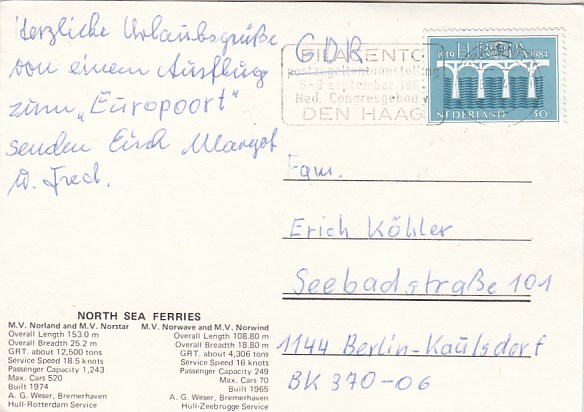 Herzliche Urlaubsgrüße
von einem Ausflug
zum „Europoort“
senden Euch Margot
u. Fred.
GDR
FILACENTO
postzegeltentoonstelling
6-9 september 198
Ned. Congresgebouw
DEN HAAG
1959 EUROPA 1984
NEDERLAND 50
Fam.
Erich Köhler
Seebadstraße 101
1144 Berlin-Kaulsdorf
BK 370-06
NORTH SEA FERRIES
M.V. Norland and M.V. Norstar
Overall Length 153.0 m
Overall Breadth 25.2 m
GRT. about 12,500 tons
Service Speed 18.5 knots
Passenger Capacity 1,243
Max. Cars 520
Built 1974
A. G. Weser, Bremerhaven
Hull-Rotterdam Service
M.V. Norwave and M.V. Norwind
Overall Length 108.80 m
Overall Breadth 18.80 m
GRT. about 4,306 tons
Service Speed 16 knots
Passenger Capacity 249
Max. Cars 70
Built 1965
A. G. Weser, Bremerhaven
Hull-Zeebrugge Service